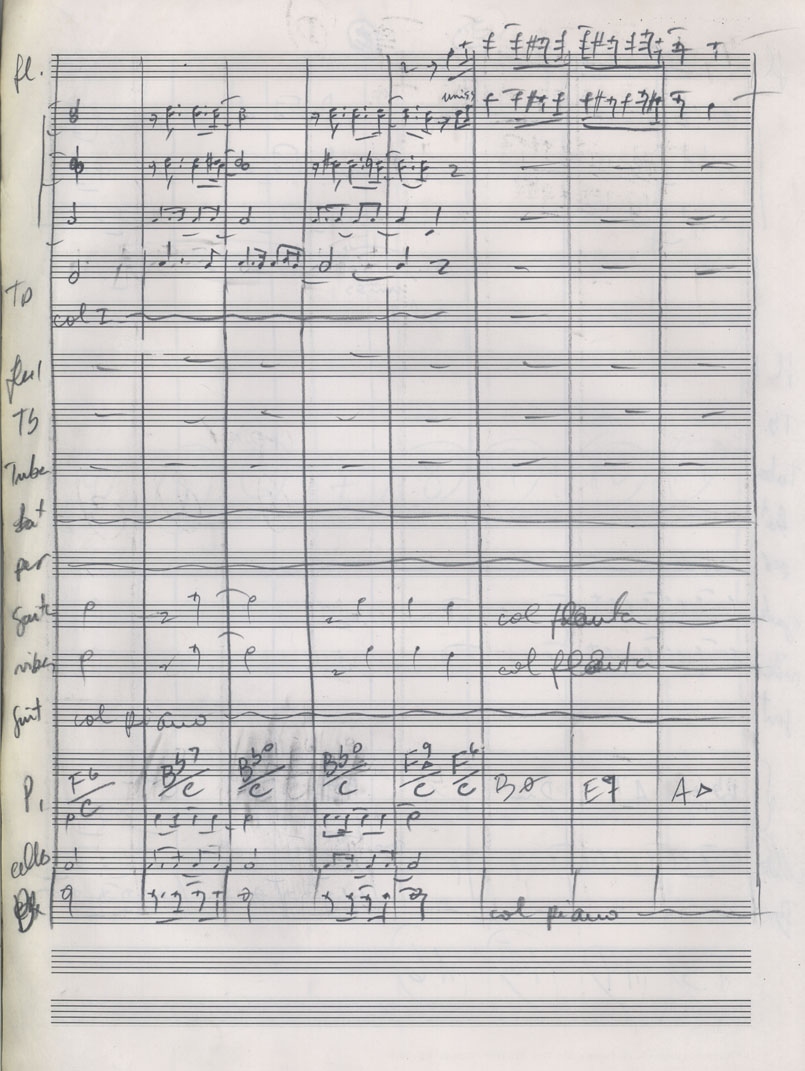 fl.
uniss
Tp
col I
flul
Tb
Tuba
bat
per
col flauta
vibes
col flauta
Guit
col piano
F6/C Bb7/C Bb0/C Bb0/C F9/C F6/C Bø E7 A△
P.
cello
Bx
col piano